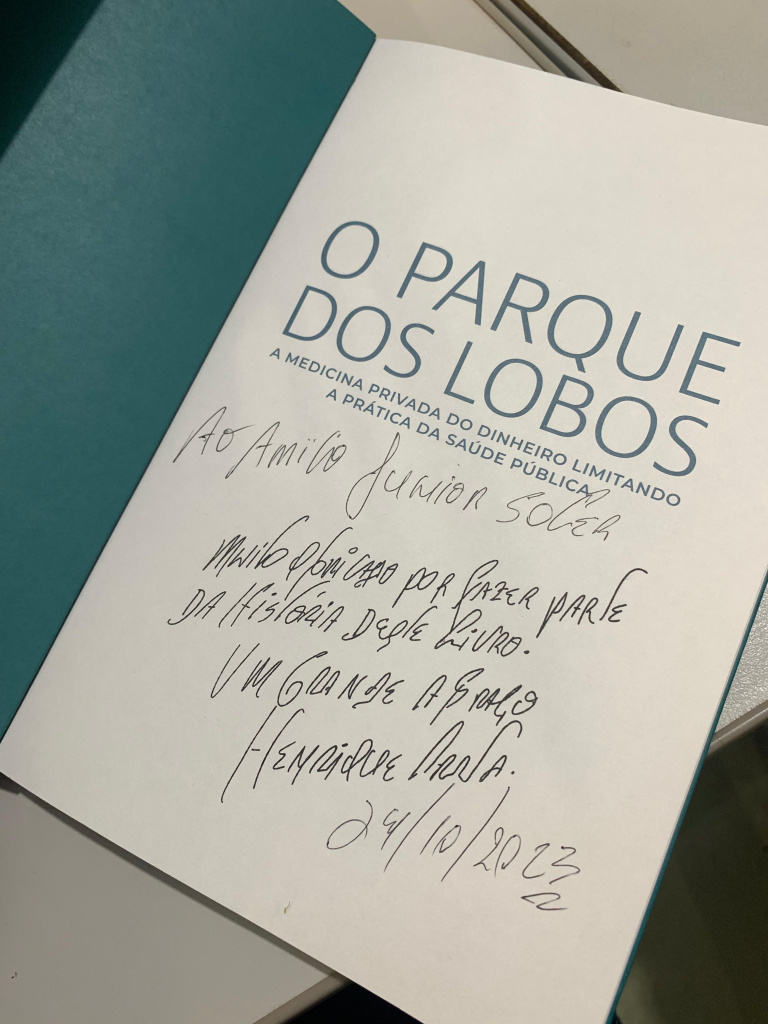 O PARQUE
DOS LOBOS
A MEDICINA PRIVADA DO DINHEIRO LIMITANDO
A PRÁTICA DA SAÚDE PÚBLICA
AO AMIGO JUNIOR SOLER
MUITO OBRIGADO POR FAZER PARTE
DA HISTÓRIA DESTE LIVRO.
UM GRANDE ABRAÇO
HENRIQUE
24/10/2023